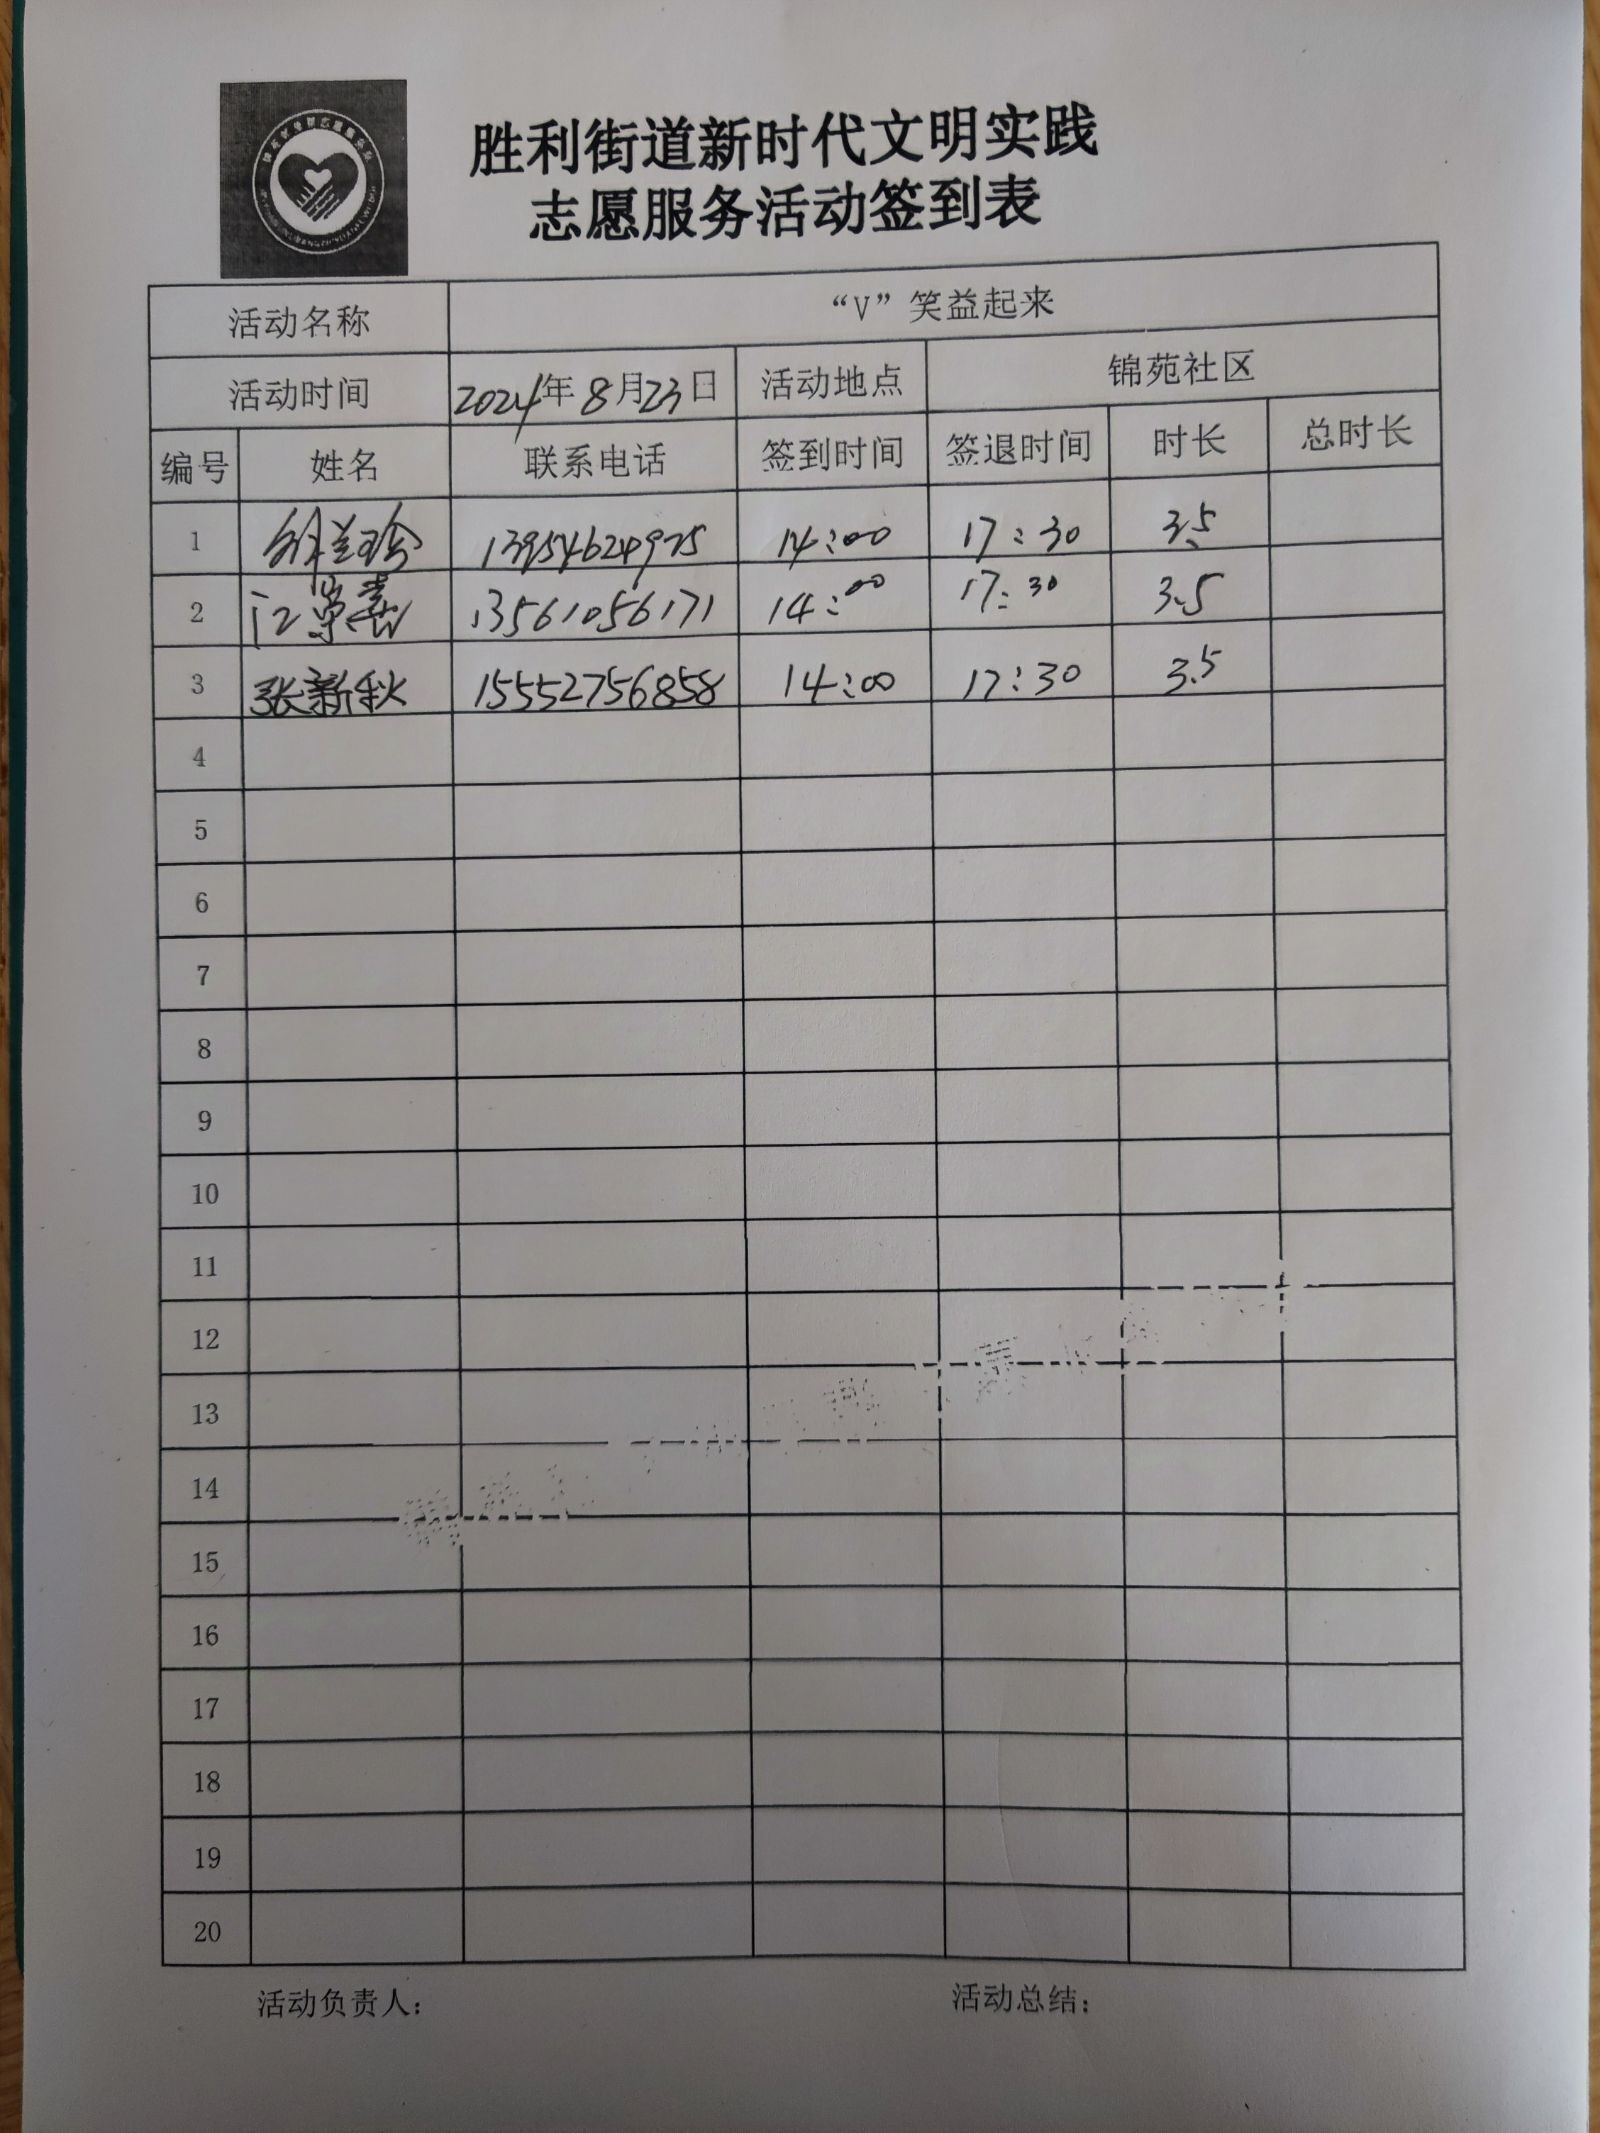 胜利街道新时代文明实践
志愿服务活动签到表
活动名称 “V”笑益起来
活动时间 2024年8月23日 活动地点 锦苑社区
编号 姓名 联系电话 签到时间 签退时间 时长 总时长
1 兰珍 13954624975 14:00 17:30 3.5
2 江荣喜 13561056171 14:00 17:30 3.5
3 张新秋 15552756858 14:00 17:30 3.5
4
5
6
7
8
9
10
11
12
13
14
15
16
17
18
19
20
活动负责人: 活动总结: